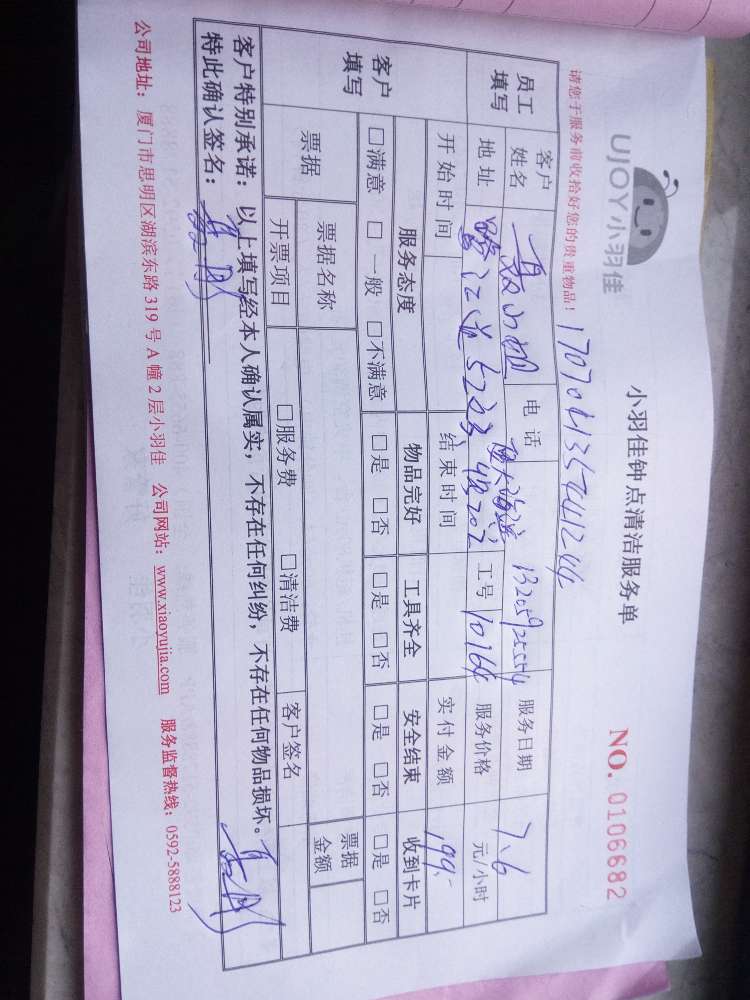 UJOY小羽佳
小羽佳钟点清洁服务单
NO. 0106682
请您于服务前收拾好您的贵重物品！
员工填写 客户姓名 电话 服务日期 7.6
地址 工号 10764 服务价格 元/小时
开始时间 结束时间 实付金额 199.-
客户填写 服务态度 物品完好 工具齐全 安全结束 收到卡片
□满意 □一般 □不满意 □是 □否 □是 □否 □是 □否 □是 □否
票据 票据名称 票据金额
开票项目 □服务费 □清洁费 客户签名
客户特别承诺：以上填写经本人确认属实，不存在任何纠纷，不存在任何物品损坏。
特此确认签名：
公司地址：厦门市思明区湖滨东路 319 号 A 幢 2 层小羽佳 公司网站：www.xiaoyujia.com 服务监督热线：0592-5888123